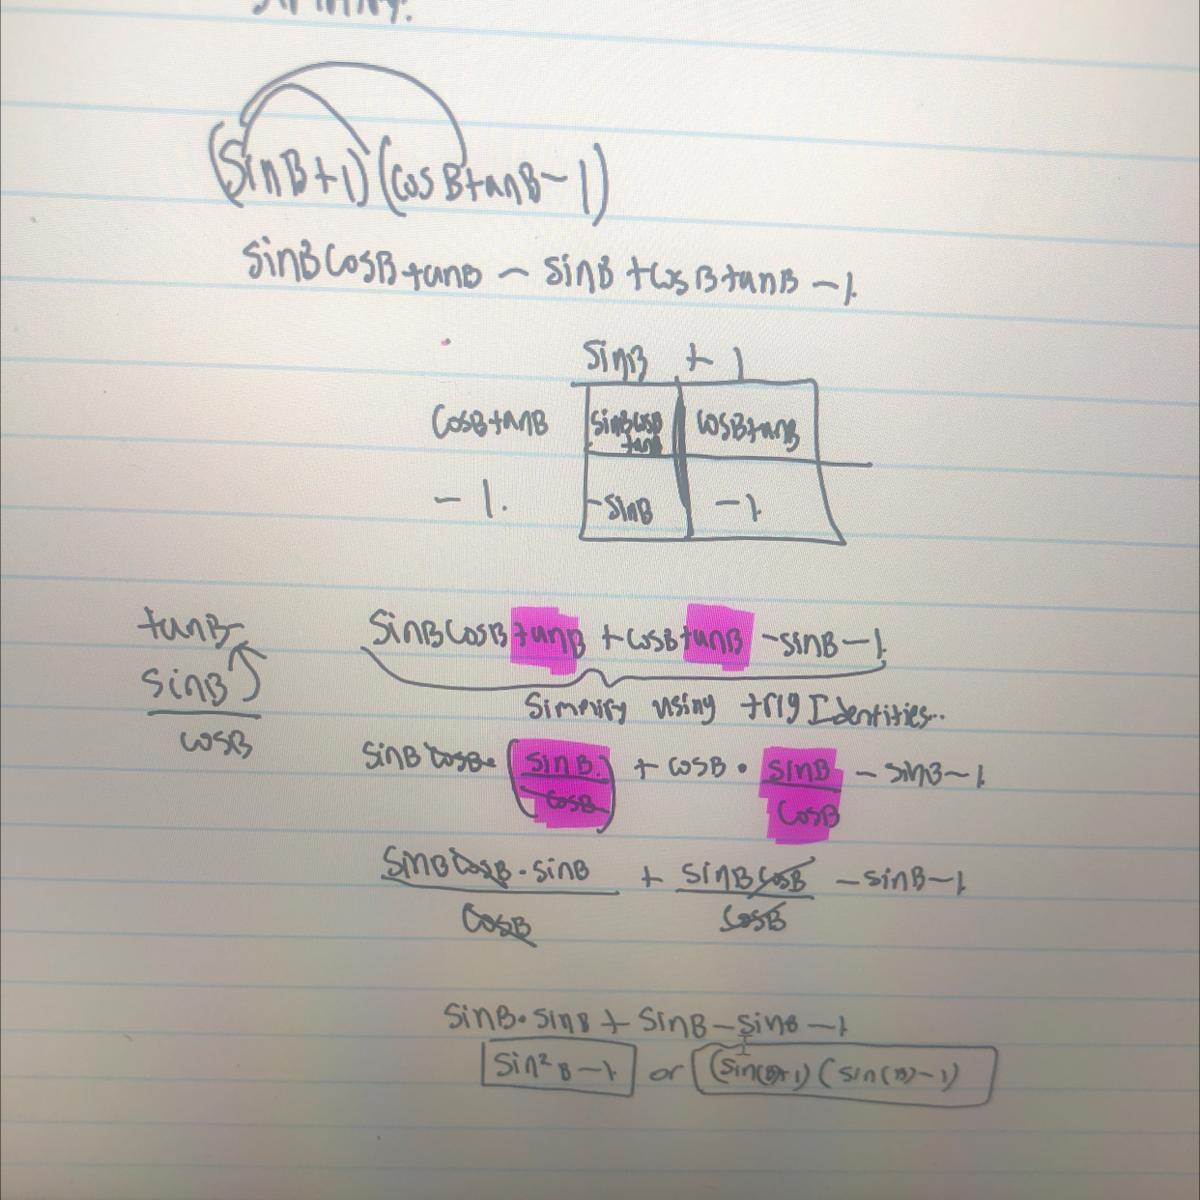 (sinB+1)(cosBtanB-1)
sinBcosBtanB - sinB + cosBtanB - 1.
sinB + 1
cosBtanB sinBcosBtanB cosBtanB
- 1. -sinB -1
tanB sinBcosBtanB + cosBtanB - sinB - 1
sinB/cosB
Simplify using trig Identities..
sinB cosB • (sinB/cosB) + cosB • sinB/cosB - sinB - 1
sinBcosB • sinB/cosB + sinBcosB/cosB - sinB - 1
sinB • sinB + sinB - sinB - 1
sin²B - 1 or (sin(B)+1)(sin(B)-1)